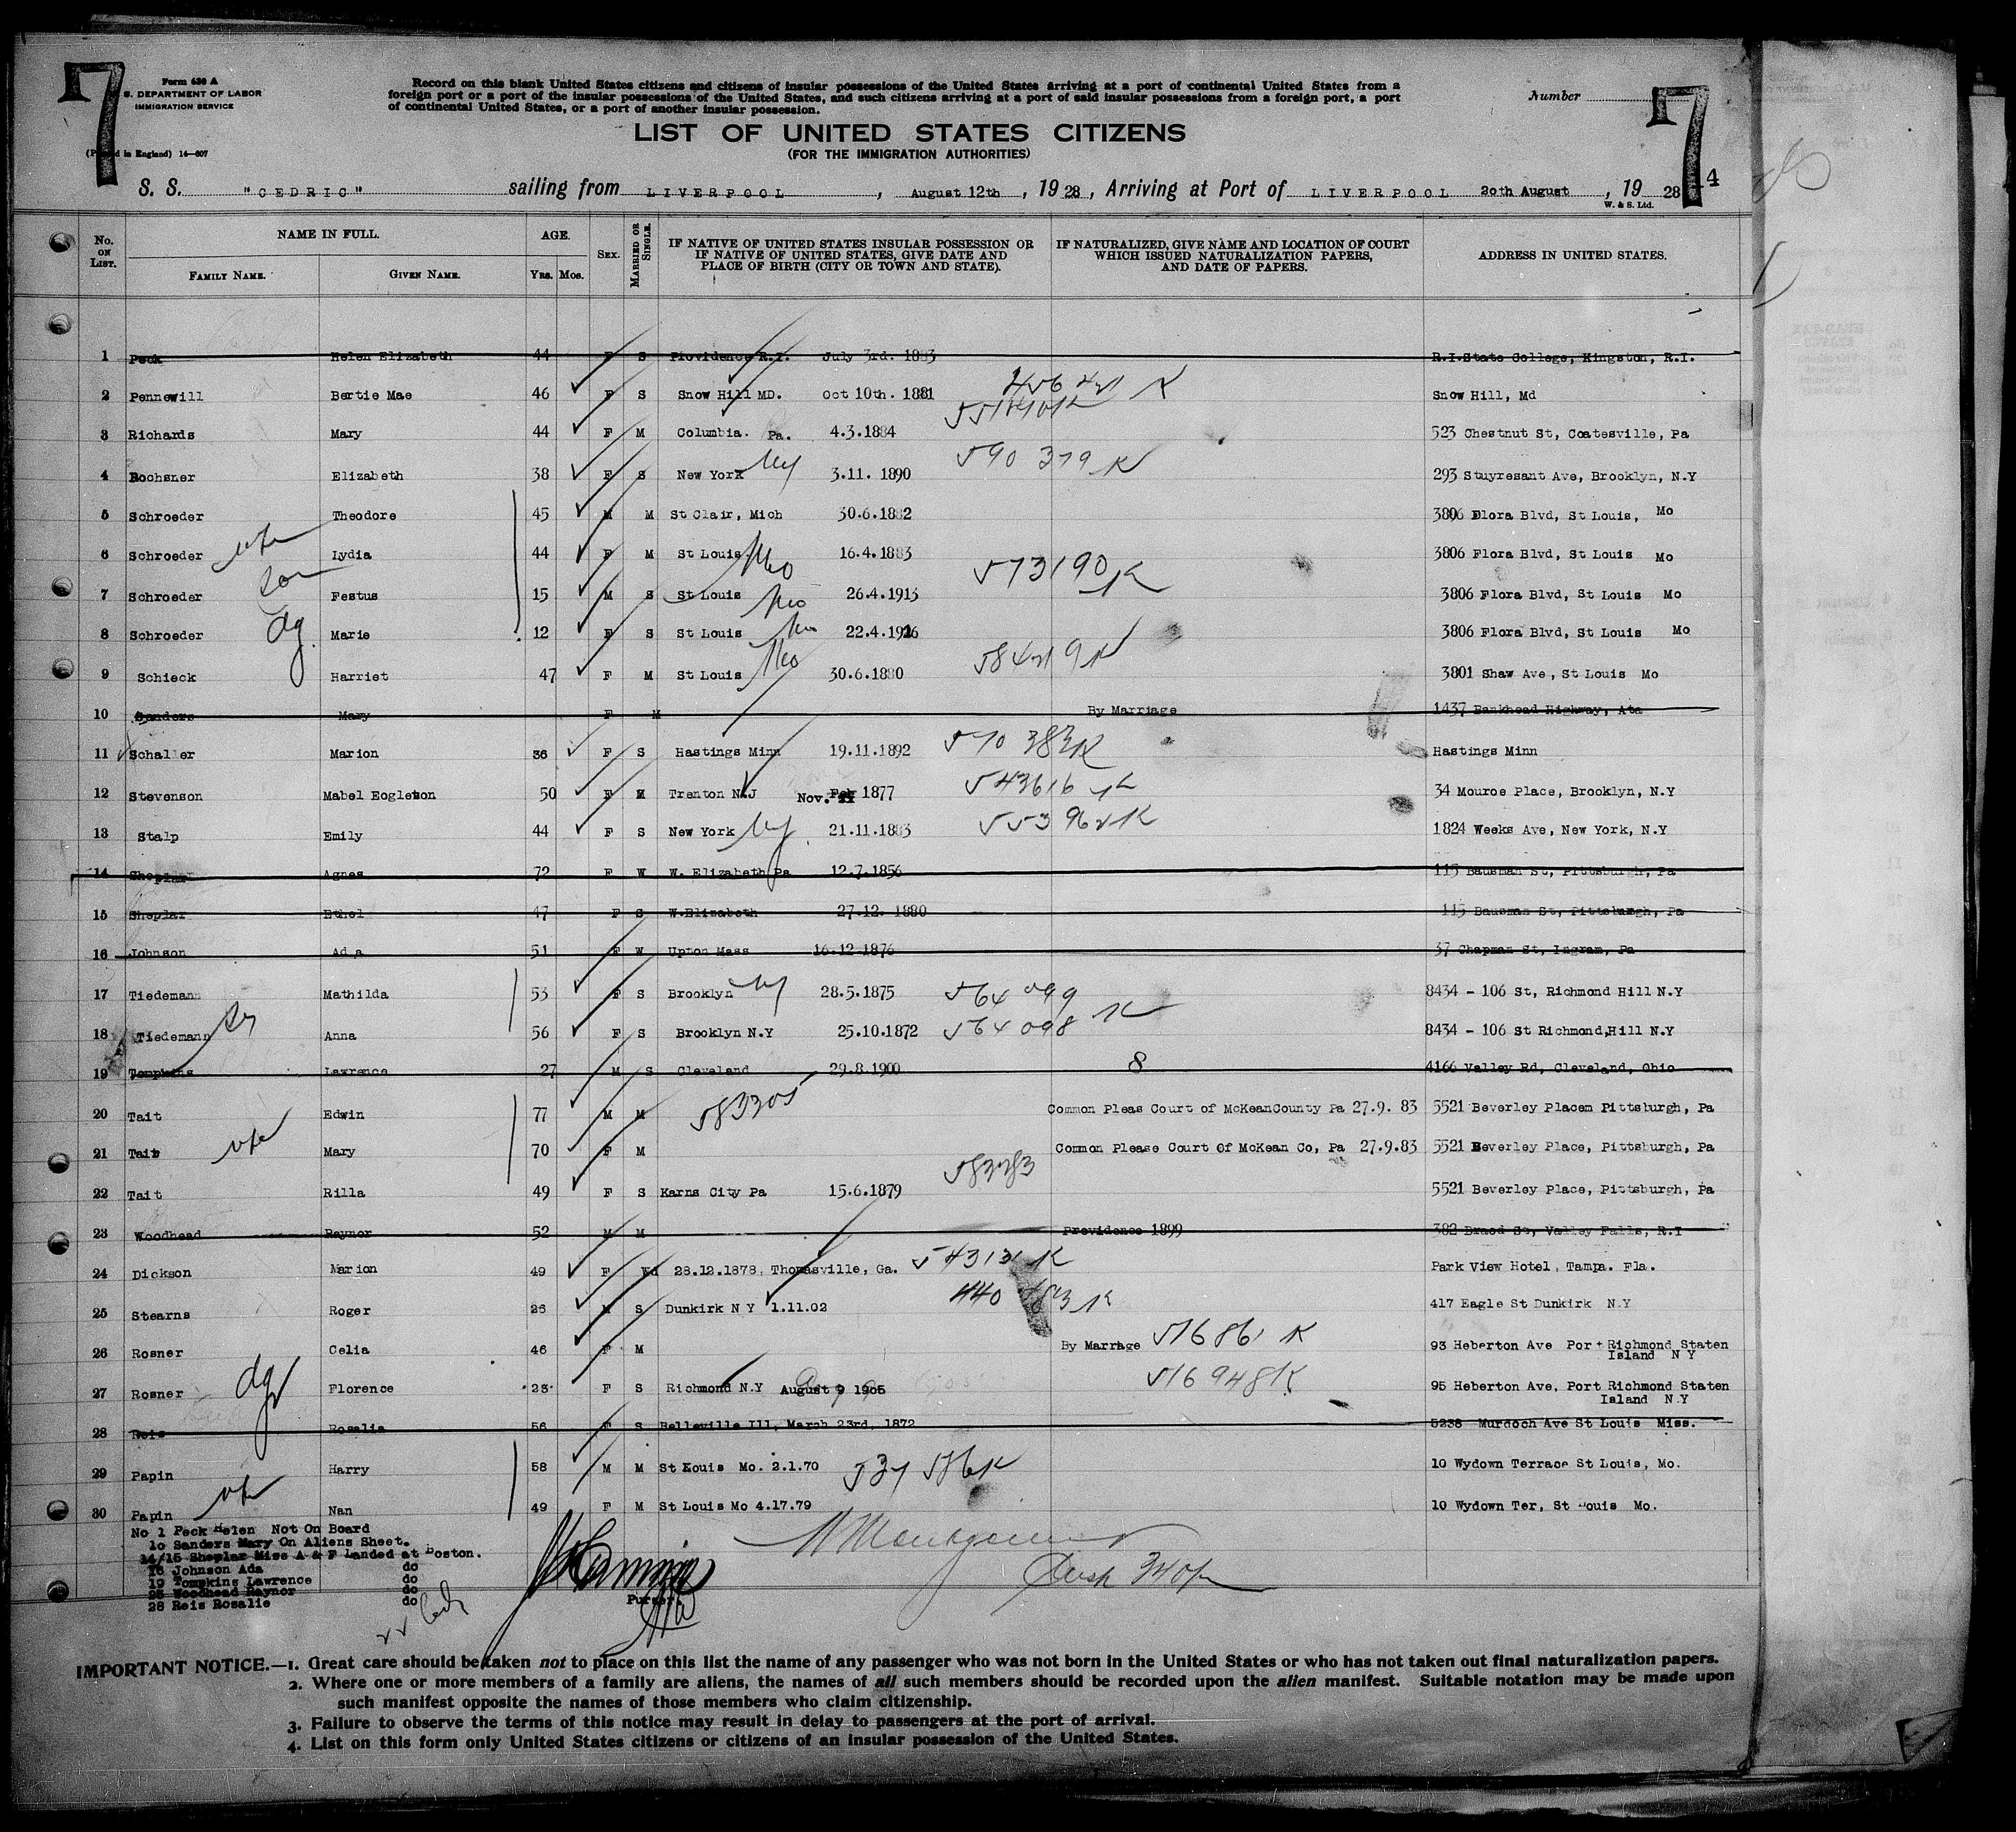 7
Form 630 A
S. DEPARTMENT OF LABOR
IMMIGRATION SERVICE
in England) 14—607
Record on this blank United States citizens and citizens of insular possessions of the United States arriving at a port of continental United States from a
foreign port or a port of the insular possessions of the United States, and such citizens arriving at a port of said insular possessions from a foreign port, a port
of continental United States, or a port of another insular possession.
Number
17
LIST OF UNITED STATES CITIZENS
(FOR THE IMMIGRATION AUTHORITIES)
S. S. "CEDRIC" sailing from LIVERPOOL, August 12th, 1928, Arriving at Port of LIVERPOOL 20th August, 1928 4
W. & S. Ltd.
No. ON LIST. NAME IN FULL. FAMILY NAME. GIVEN NAME. AGE. Yrs. Mos. SEX. MARRIED OR SINGLE. IF NATIVE OF UNITED STATES INSULAR POSSESSION OR IF NATIVE OF UNITED STATES, GIVE DATE AND PLACE OF BIRTH (CITY OR TOWN AND STATE). IF NATURALIZED, GIVE NAME AND LOCATION OF COURT WHICH ISSUED NATURALIZATION PAPERS, AND DATE OF PAPERS. ADDRESS IN UNITED STATES.
1 Peck Helen Elizabeth 44 F S Providence R.I. July 3rd. 1883 R.I.State College, Kingston, R.I.
2 Pennewill Bertie Mae 46 F S Snow Hill MD. Oct 10th. 1881 Snow Hill, Md
3 Richards Mary 44 F M Columbia. Pa. 4.3.1884 523 Chestnut St, Coatesville, Pa
4 Rochsner Elizabeth 38 F S New York Ny 3.11. 1890 590 379 K 293 Stuyresant Ave, Brooklyn, N.Y
5 Schroeder Theodore 45 M M St Clair, Mich 30.6.1882 3806 Flora Blvd, St Louis, Mo
6 Schroeder wfe Lydia 44 F M St Louis Mo 16.4.1883 3806 Flora Blvd, St Louis Mo
7 Schroeder Son Festus 15 M S St Louis Mo 26.4.1913 573190 K 3806 Flora Blvd, St Louis Mo
8 Schroeder dg. Marie 12 F S St Louis Mo 22.4.1916 3806 Flora Blvd, St Louis Mo
9 Schieck Harriet 47 F M St Louis Mo 30.6.1880 584219 K 3801 Shaw Ave, St Louis Mo
10 Sanders Mary F M By Marriage 1437 Bankhead Highway, Ata
11 Schaller Marion 36 F S Hastings Minn 19.11.1892 570 383K Hastings Minn
12 Stevenson Mabel Eogleton 50 F M Trenton N.J Nov. 1877 543616 K 34 Mouroe Place, Brooklyn, N.Y
13 Stalp Emily 44 F S New York Ny 21.11.1883 553 962K 1824 Weeks Ave, New York, N.Y
14 Sheplar Agnes 72 F W W. Elizabeth Pa 12.7.1856 115 Bausman St, Pittsburgh, Pa
15 Sheplar Ethel 47 F S W.Elizabeth 27.12. 1880 115 Bausman St, Pittsburgh, Pa
16 Johnson Ada 51 F W Upton Mass 16.12.1876 37 Chapman St, Ingram, Pa
17 Tiedemann Mathilda 53 F S Brooklyn Ny 28.5.1875 564 099 8434 - 106 St, Richmond Hill N.Y
18 Tiedemann Anna 56 F S Brooklyn N.Y 25.10.1872 564 098 K 8434 - 106 St Richmond,Hill N.Y
19 Tompkins Lawrence 27 M S Cleveland 29.8.1900 8 4166 Valley Rd, Cleveland, Ohio
20 Tait Edwin 77 M M 583305 Common Pleas Court of McKeanCounty Pa 27.9. 83 5521 Beverley Placem Pittsburgh, Pa
21 Tait wfe Mary 70 F M Common Please Court Of McKean Co, Pa 27.9.83 5521 Beverley Place, Pittsburgh, Pa
22 Tait Rilla 49 F S Karns City Pa 15.6.1879 583283 5521 Beverley Place, Pittsburgh, Pa
23 Woodhead Raynor 52 M M Providence 1899 382 Braod St, Valley Falls, R.I
24 Dickson Marion 49 F Wd 28.12.1878, Thomasville, Ga. K Park View Hotel, Tampa. Fla.
25 Stearns Roger 26 M S Dunkirk N Y 1.11.02 440 K 417 Eagle St Dunkirk N.Y
26 Rosner Celia 46 F M By Marriage K 93 Heberton Ave Port Richmond Staten Island N Y
27 Rosner dg Florence 23 F S Richmond N.Y August 9 1905 516948K 95 Heberton Ave, Port Richmond Staten Island N.Y
28 Reis Rosalia 56 F S Belleville Ill, March 23rd, 1872 5238 Murdoch Ave St Louis Miss.
29 Papin Harry 58 M M St Kouis Mo. 2.1.70 10 Wydown Terrace St Louis, Mo.
30 Papin wfe Nan 49 F M St Louis Mo 4.17.79 10 Wydown Ter, St Louis Mo.
No 1 Peck Helen Not On Board
10 Sanders Mary On Aliens Sheet.
14/15 Sheplar Miss A & F Landed at Boston.
16 Johnson Ada do
19 Tompkins Lawrence do
23 Woodhead Raynor do
28 Reis Rosalie do
Purser.
IMPORTANT NOTICE.—1. Great care should be taken not to place on this list the name of any passenger who was not born in the United States or who has not taken out final naturalization papers.
2. Where one or more members of a family are aliens, the names of all such members should be recorded upon the alien manifest. Suitable notation may be made upon
such manifest opposite the names of those members who claim citizenship.
3. Failure to observe the terms of this notice may result in delay to passengers at the port of arrival.
4. List on this form only United States citizens or citizens of an insular possession of the United States.